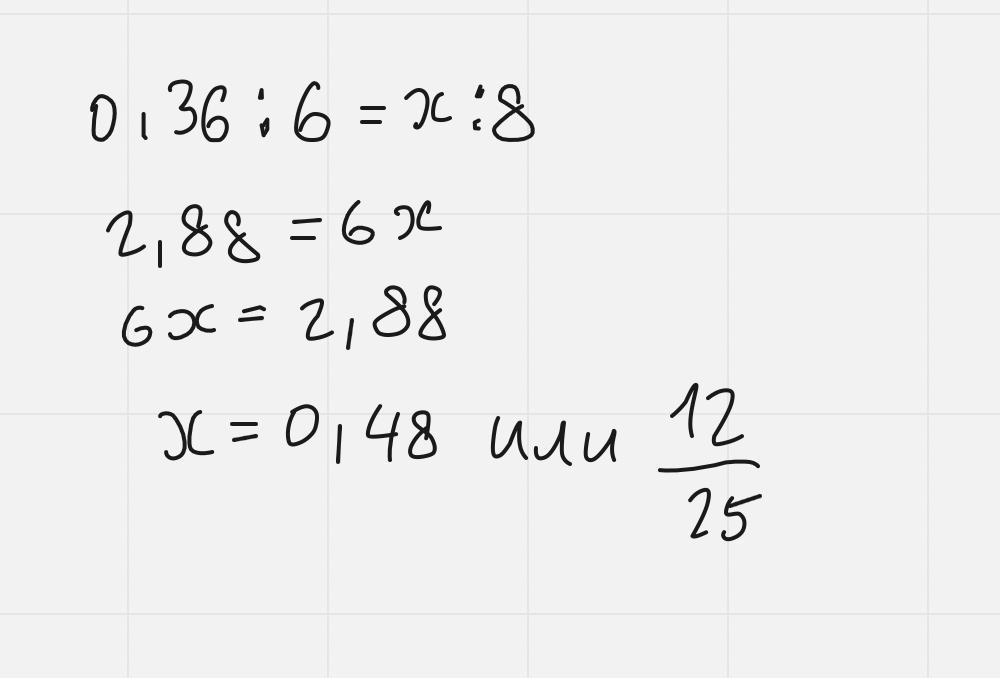 0,36:6=x:8
2,88=6x
6x=2,88
x=0,48 или 12/25